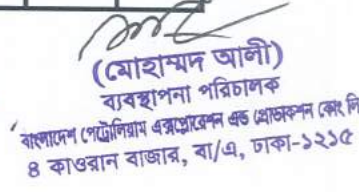 (মোহাম্মদ আলী)
ব্যবস্থাপনা পরিচালক
বাংলাদেশ পেট্রোলিয়াম এক্সপ্লোরেশন এন্ড প্রোডাকশন কোং লি
৪ কাওরান বাজার, বা/এ, ঢাকা-১২১৫